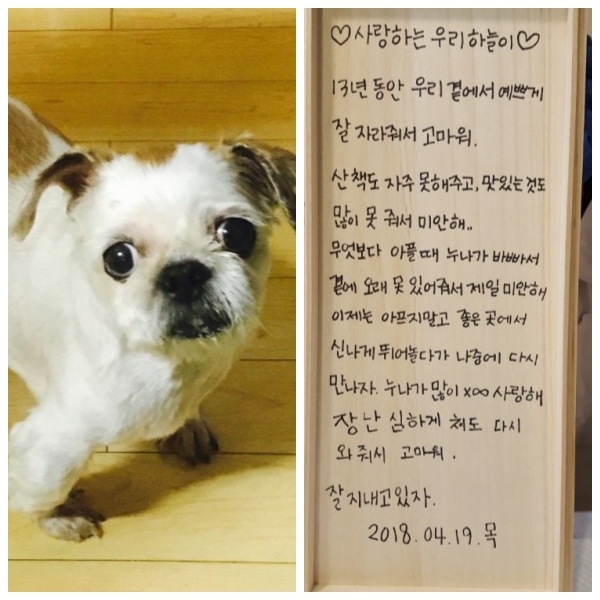 ♡사랑하는 우리 하늘이♡
13년 동안 우리 곁에서 예쁘게
잘 자라줘서 고마워.
산책도 자주 못해주고, 맛있는 것도
많이 못 줘서 미안해..
무엇보다 아플 때 누나가 바빠서
곁에 오래 못 있어줘서 제일 미안해
이제는 아프지말고 좋은 곳에서
신나게 뛰어놀다가 나중에 다시
만나자. 누나가 많이 x∞ 사랑해
장난 심하게 쳐도 다시
와 줘서 고마워.
잘 지내고 있자.
2018.04.19.목